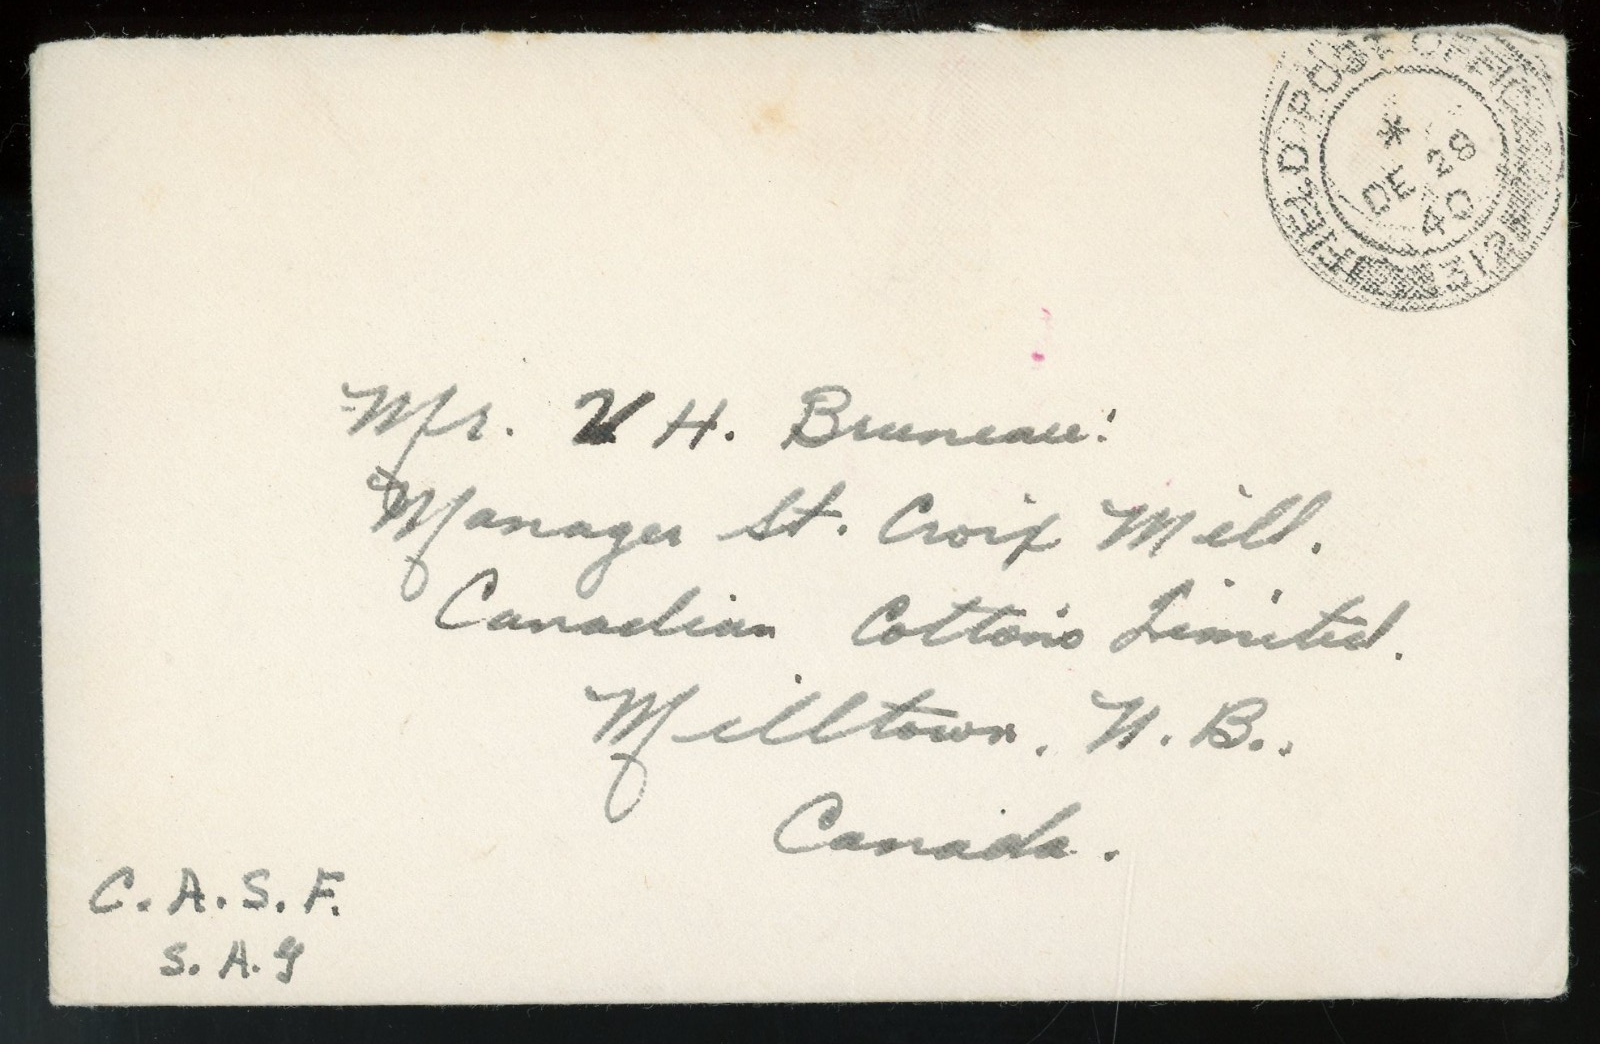 FIELD POST OFFICE 312
*
DE 28
40
Mr. H. Bruneau.
Manager St. Croix Mill.
Canadian Cottons Limited.
Milltown. N. B..
Canada.
C. A. S. F.
S. A. G